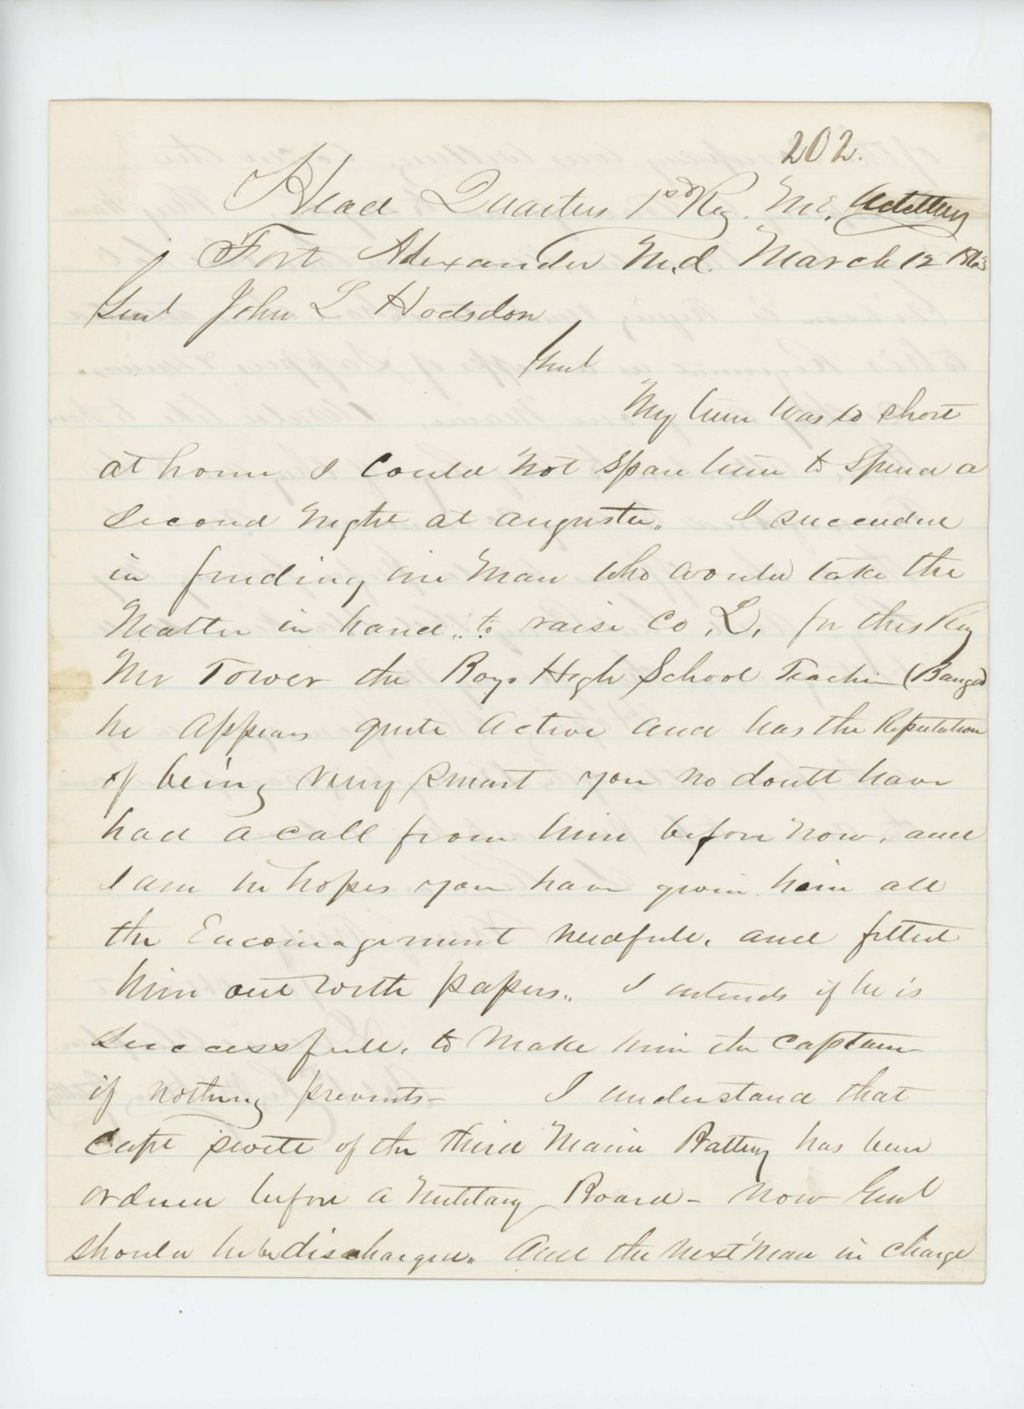 202.
Head Quarters 1st Reg. Me. Artillery
Fort Alexander Md. March 12 1863
Genl John L Hodsdon
Genl
My time was to short
at home I could not spare time to spend a
second night at augusta. I succeeded
in finding one man who would take the
matter in hand, to raise Co, L, for this Reg
Mr Tower the Boys High School Teacher (Bangor)
he appears quite active and has the Reputation
of being very smart you no doubt have
had a call from him before now, and
I am in hopes you have given him all
the Encouragement needful, and fitted
him out with papers. I intends if he is
successfull, to make him the Captain
if nothing prevents- I understand that
Capt swett of the third Maine Battery has been
ordered before a Military Board- now Genl
should he be discharged. And the next man in charge